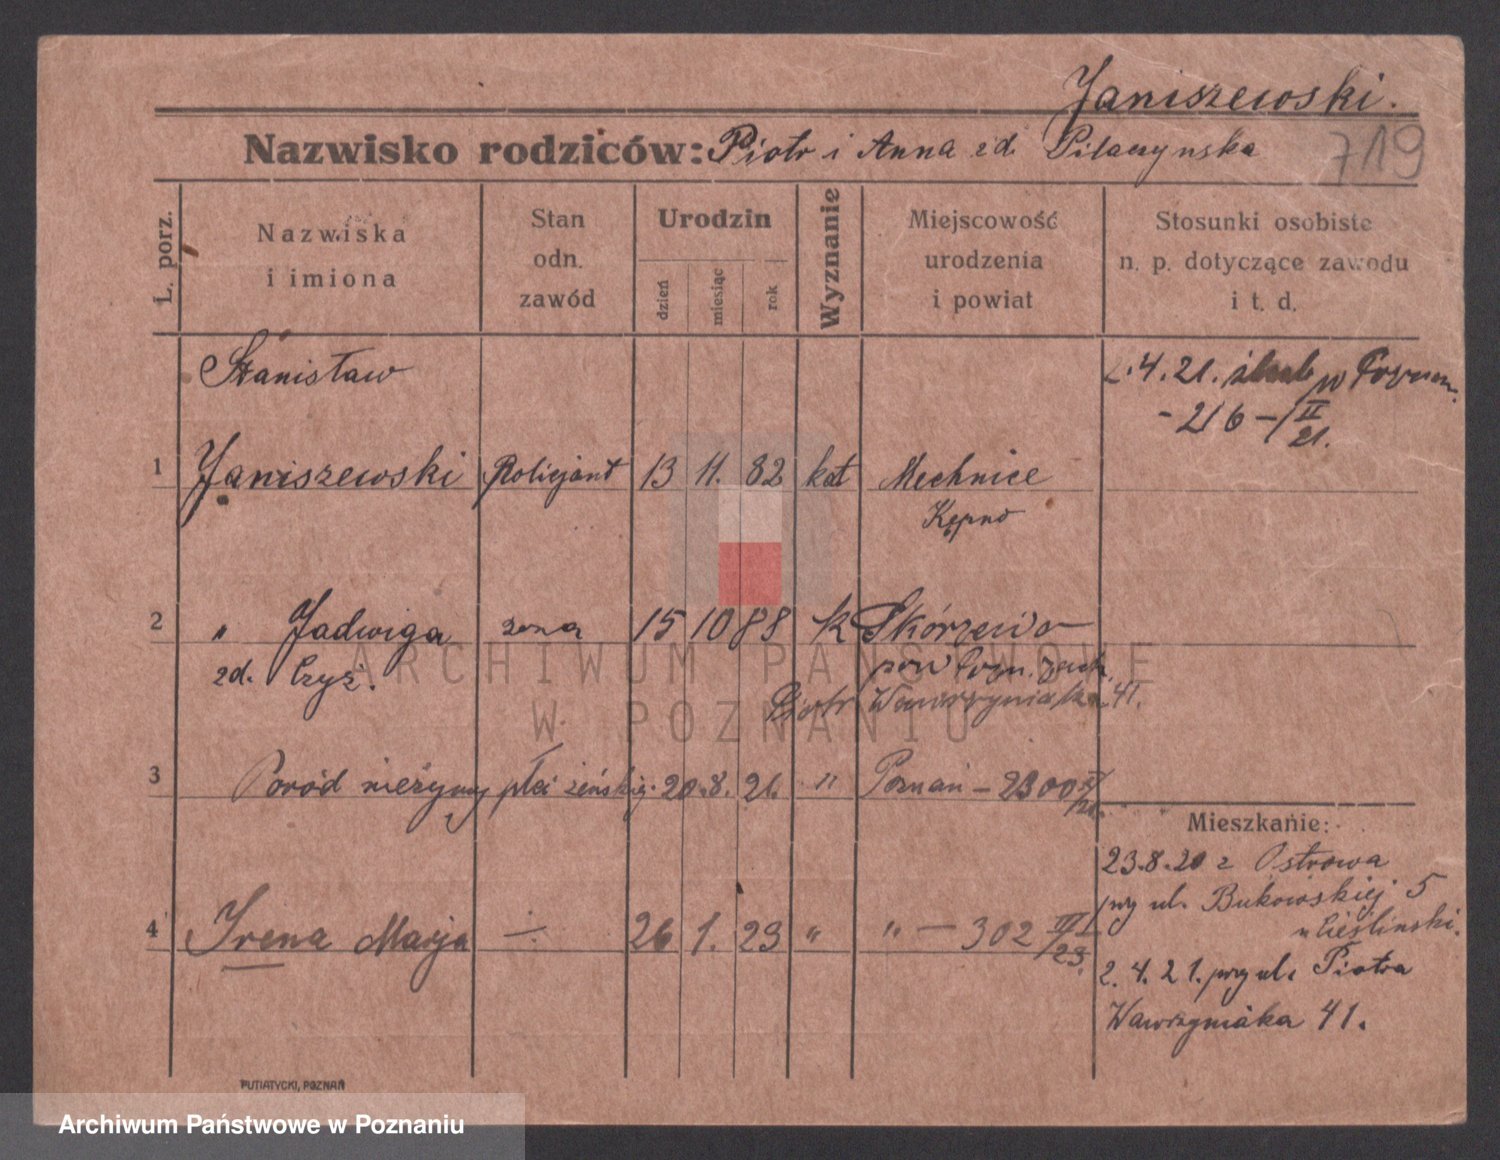 Janiszewski.
Nazwisko rodziców: Piotr i Anna zd. Pilaczynska
719
L. porz.
Nazwiska
i imiona
Stan
odn.
zawód
Urodzin
dzień
miesiąc
rok
Wyznanie
Miejscowość
urodzenia
i powiat
Stosunki osobiste
n. p. dotyczące zawodu
i t. d.
Stanisław
2.4.21. ślub w Poznan.
- 216 - II
21.
1 Janiszewski Policjant 13 11. 82 kat Mechnice
Kępno
2 " Jadwiga żona 15 10 88 k Skórzewo
zd. Czyż. pow Pozn. zach.
Piotr Wawrzyniaka 41.
3 Poród nieżywy płci żeńskiej. 20. 8. 21. " Poznań - 2300
Mieszkanie:
23.8.20 z Ostrowa
przy ul. Bukowskiej 5
u Cieślinski.
4 Irena Marja ÷ 26 1. 23 " " - 302 III
23.
2. 4. 21. przy ul. Piotra
Wawrzyniaka 41.
PUTIATYCKI, POZNAŃ
ARCHIWUM PAŃSTWOWE
W POZNANIU
Archiwum Państwowe w Poznaniu